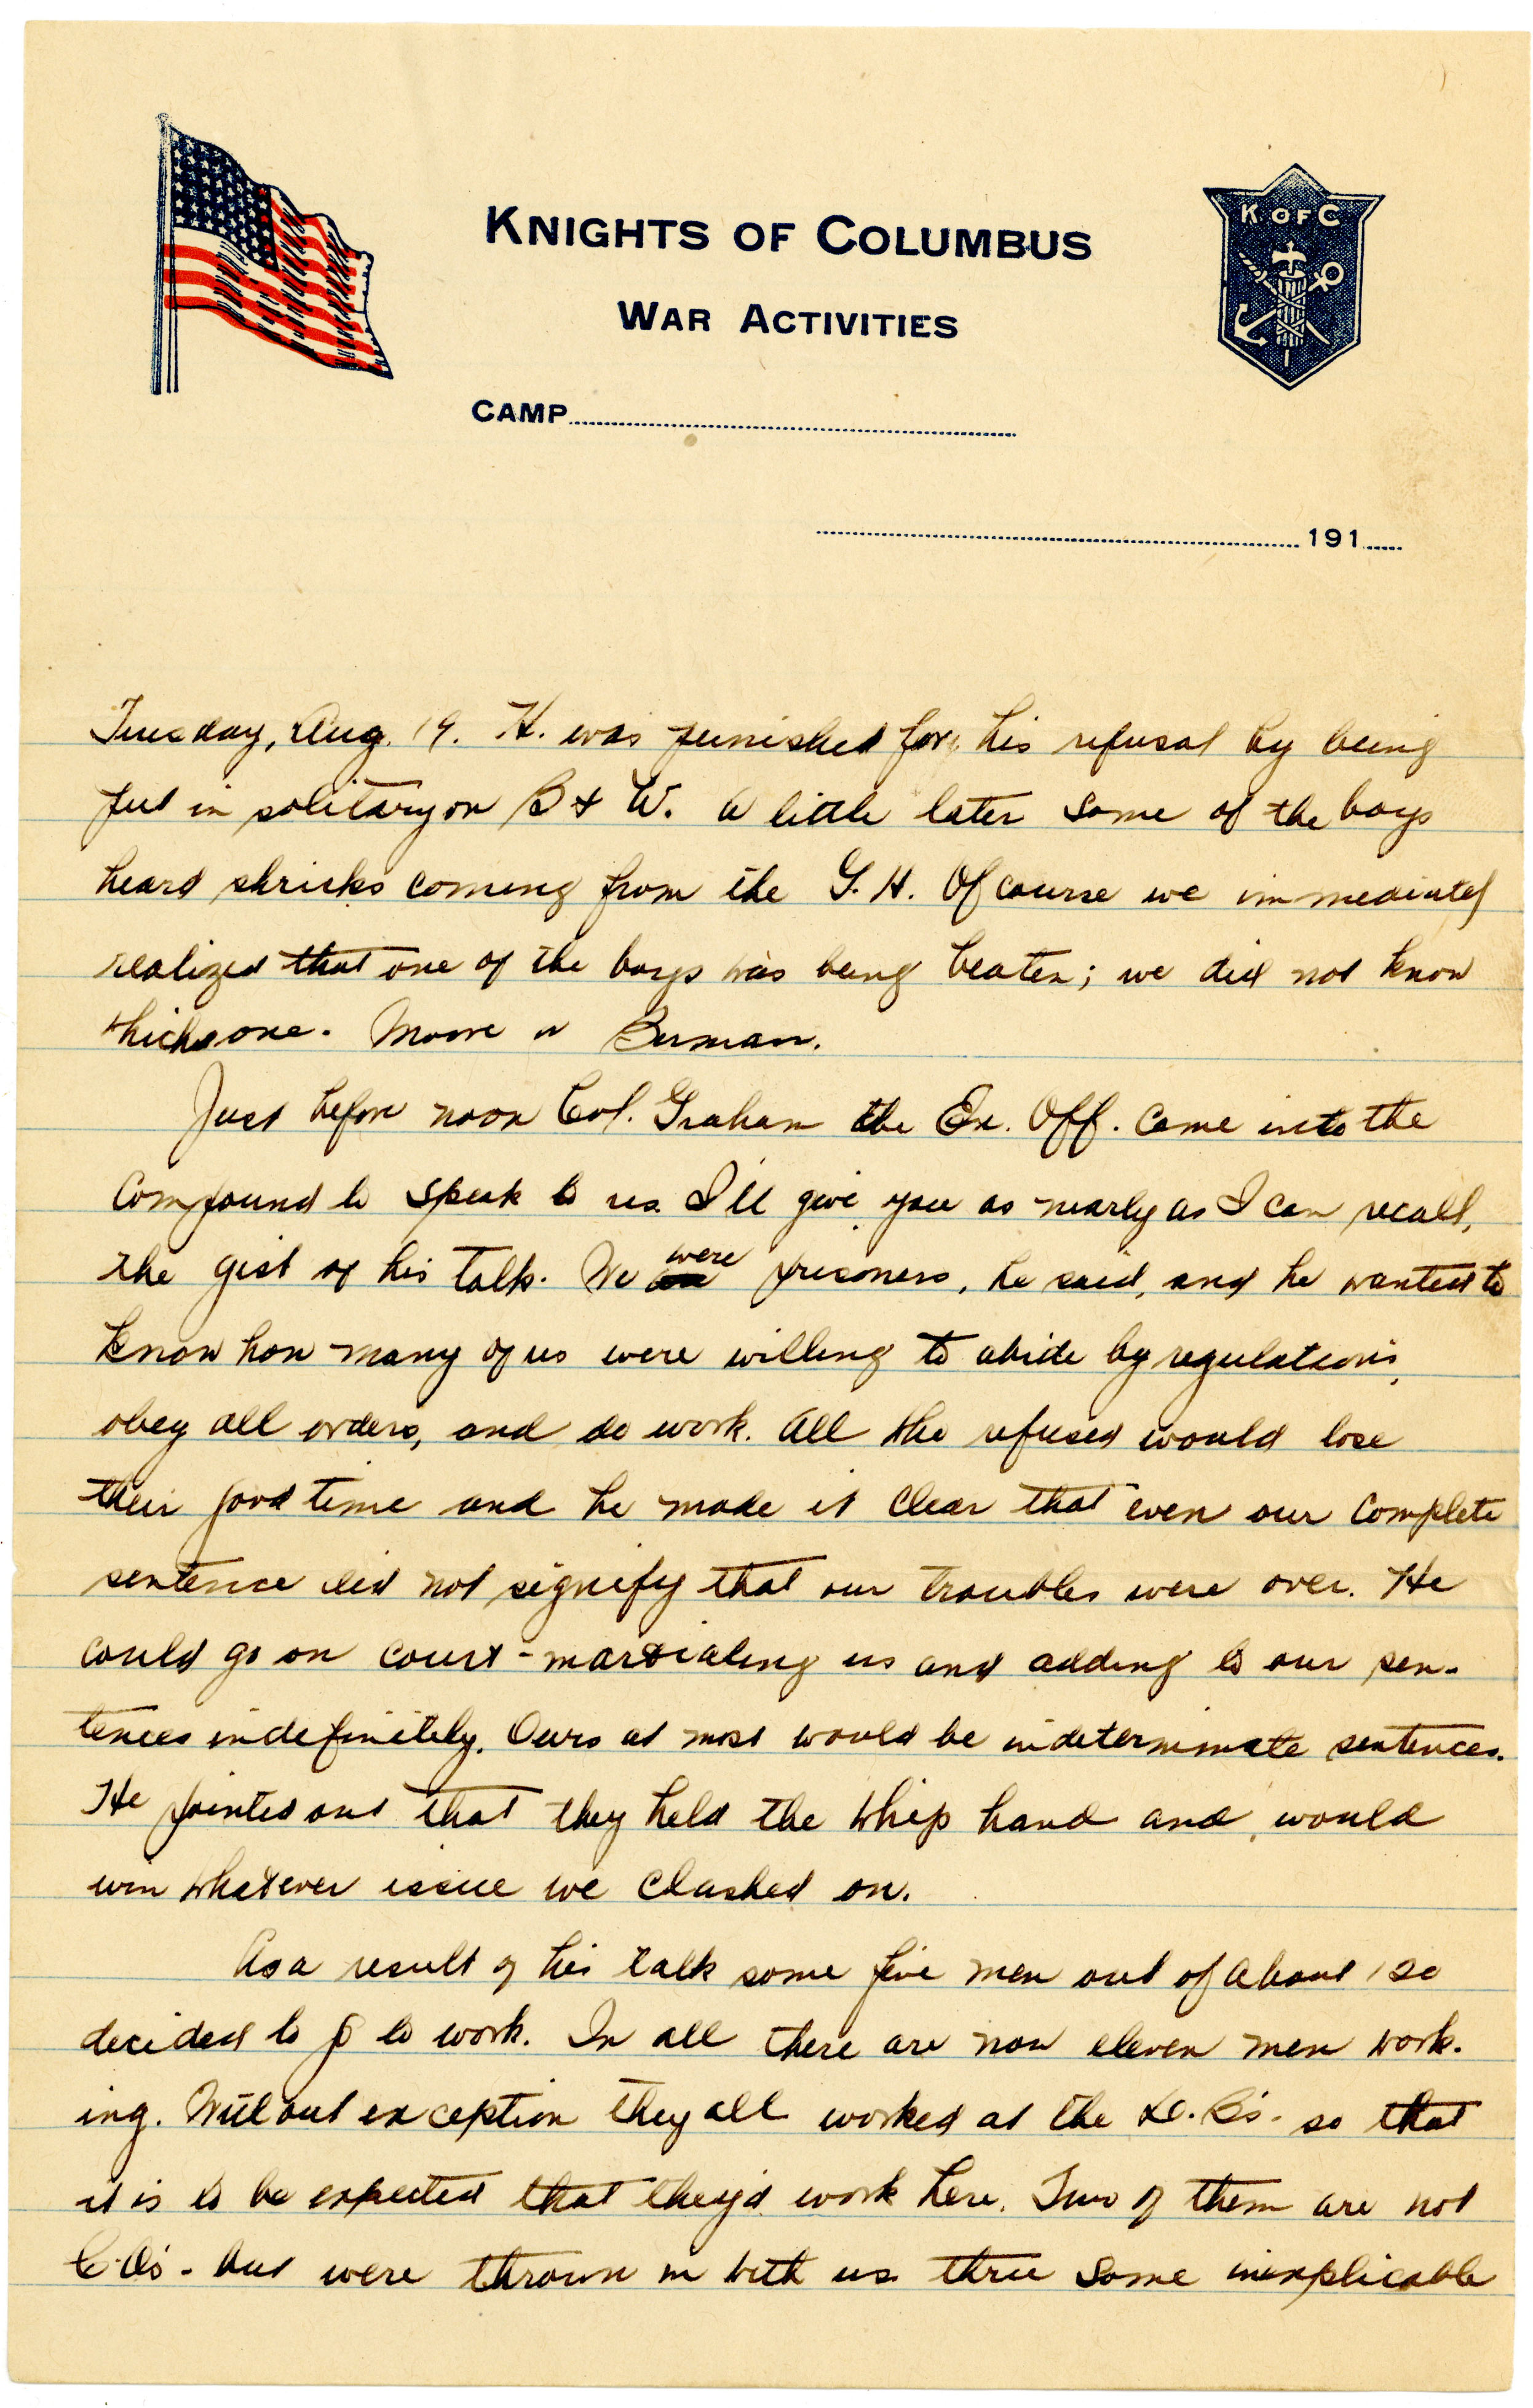 K OF C
KNIGHTS OF COLUMBUS
WAR ACTIVITIES
CAMP
191
Tuesday, Aug. 19. H. was punished for his refusal by being
put in solitary on B & W. A little later some of the boys
heard shrieks coming from the G. H. Of course we immediately
realized that one of the boys was being beaten; we did not know
which one. Moore or Berman.
Just before noon Col. Graham the Ex. Off. came into the
compound to speak to us. I'll give you as nearly as I can recall,
the gist of his talk. We were prisoners, he said, and he wanted to
know how many of us were willing to abide by regulations,
obey all orders, and do work. All who refused would lose
their good time and he made it clear that even our complete
sentence did not signify that our troubles were over. He
could go on court-martialing us and adding to our sen-
tences indefinitely. Ours at most would be indeterminate sentences.
He pointed out that they held the whip hand and would
win whatever issue we clashed on.
As a result of his talk some five men out of about 150
decided to go to work. In all there are now eleven men work-
ing. Without exception they all worked at the D.B's. so that
it is to be expected that they'd work here. Two of them are not
C.O's - but were thrown in with us thru some inexplicable